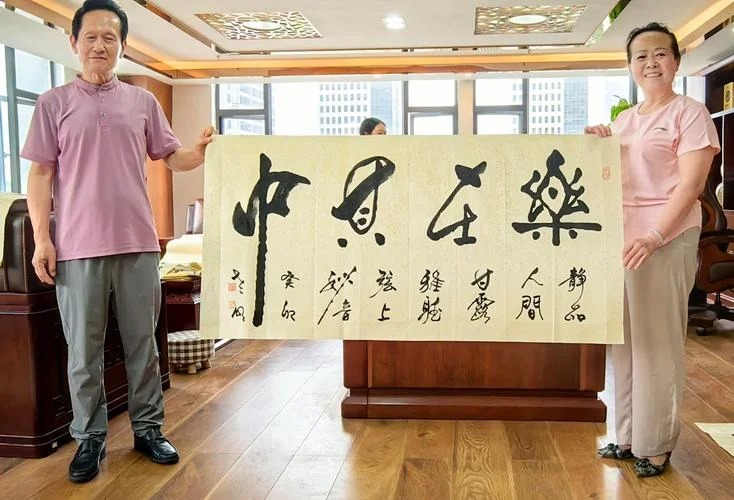 樂在其中
静品
人間
甘露
雅聽
弦上
妙音
癸卯